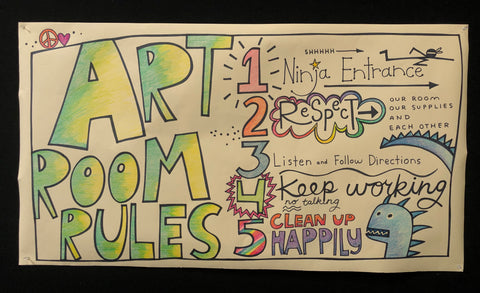 ART
ROOM
RULES
1
SHHHHH
Ninja Entrance
2
ReSpecT
OUR ROOM
OUR SUPPLIES
AND
EACH OTHER
3
Listen and Follow Directions
4
Keep working
no talking
5
CLEAN UP
HAPPILY